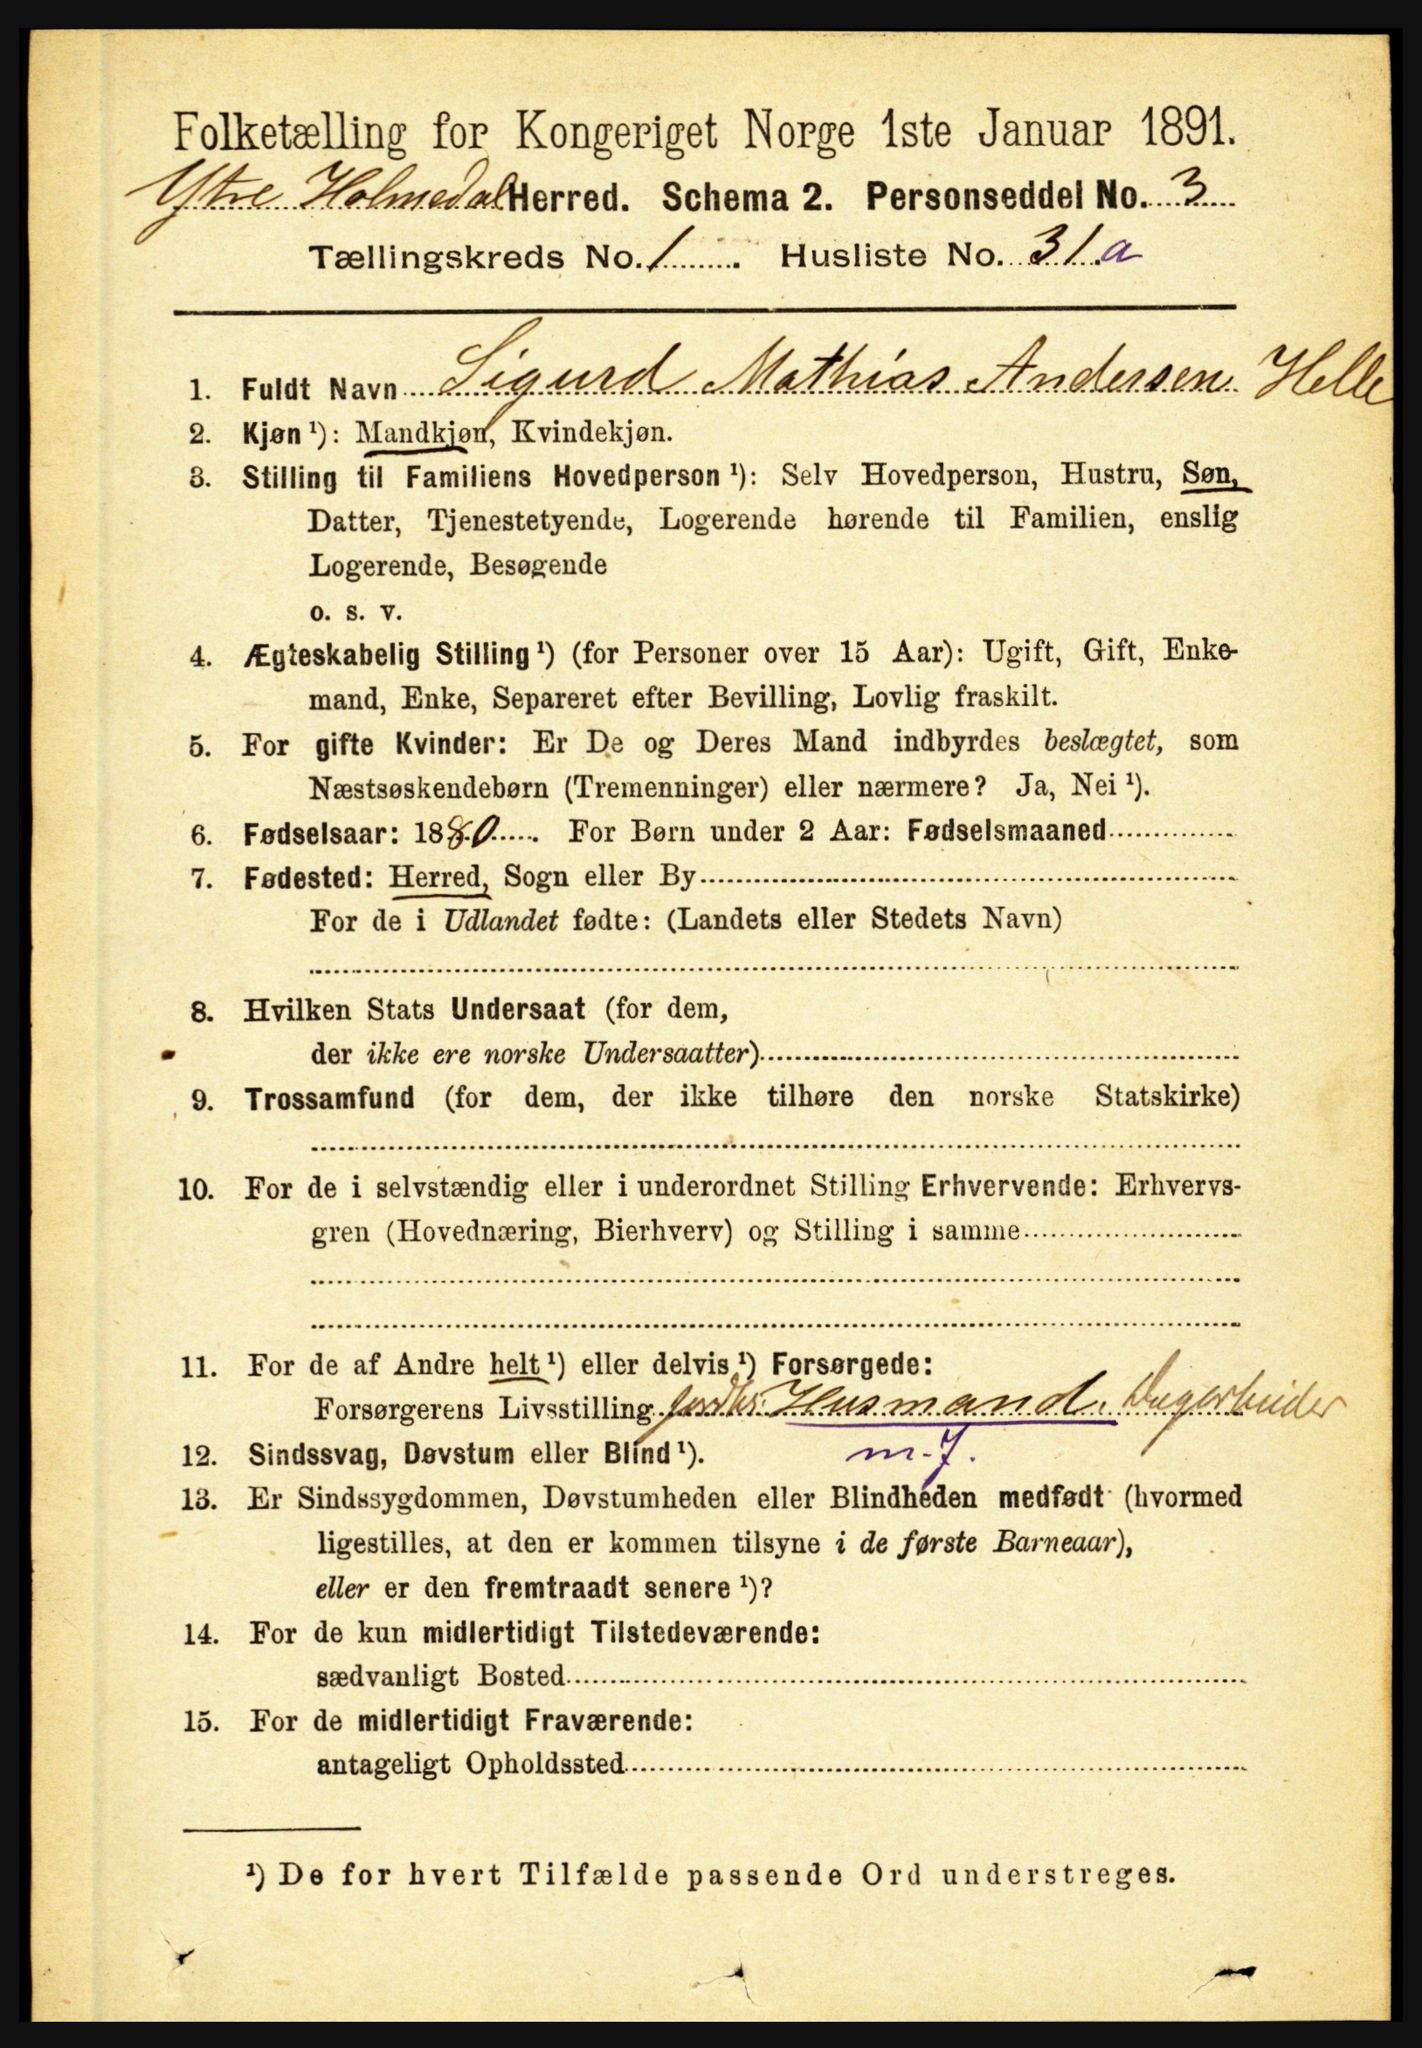 Folketælling for Kongeriget Norge 1ste Januar 1891.
Ytre Holmedal Herred. Schema 2. Personseddel No. 3
Tællingskreds No. 1 . Husliste No. 31 a
1. Fuldt Navn Sigurd Mathias Andersen Helle
2. Kjøn ¹): Mandkjøn, Kvindekjøn.
3. Stilling til Familiens Hovedperson ¹): Selv Hovedperson, Hustru, Søn,
Datter, Tjenestetyende, Logerende hørende til Familien, enslig
Logerende, Besøgende
o. s. v.
4. Ægteskabelig Stilling ¹) (for Personer over 15 Aar): Ugift, Gift, Enke-
mand, Enke, Separeret efter Bevilling, Lovlig fraskilt.
5. For gifte Kvinder: Er De og Deres Mand indbyrdes beslægtet, som
Næstsøskendebørn (Tremenninger) eller nærmere? Ja, Nei ¹).
6. Fødselsaar: 1880. For Børn under 2 Aar: Fødselsmaaned
7. Fødested: Herred, Sogn eller By
For de i Udlandet fødte: (Landets eller Stedets Navn)
8. Hvilken Stats Undersaat (for dem,
der ikke ere norske Undersaatter)
9. Trossamfund (for dem, der ikke tilhøre den norske Statskirke)
10. For de i selvstændig eller i underordnet Stilling Erhvervende: Erhvervs-
gren (Hovednæring, Bierhverv) og Stilling i samme
11. For de af Andre helt ¹) eller delvis ¹) Forsørgede:
Forsørgerens Livsstilling Husmand. Dagarbeider
12. Sindssvag, Døvstum eller Blind ¹). m. 7.
13. Er Sindssygdommen, Døvstumheden eller Blindheden medfødt (hvormed
ligestilles, at den er kommen tilsyne i de første Barneaar),
eller er den fremtraadt senere ¹)?
14. For de kun midlertidigt Tilstedeværende:
sædvanligt Bosted
15. For de midlertidigt Fraværende:
antageligt Opholdssted
¹) De for hvert Tilfælde passende Ord understreges.